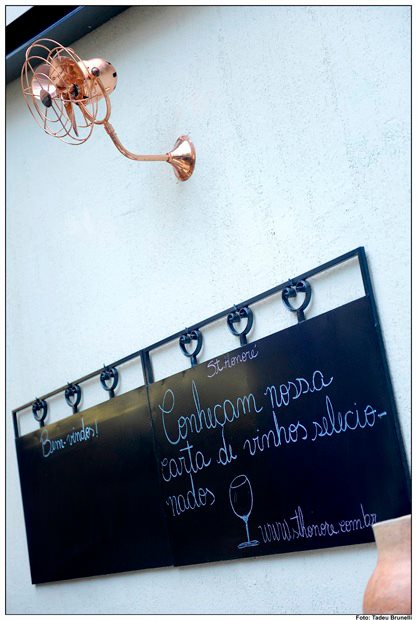 Bem-vindos!
St. Honoré
Conheçam nossa
carta de vinhos selecio-
nados
www.sthonore.com.br
Foto: Tadeu Brunelli